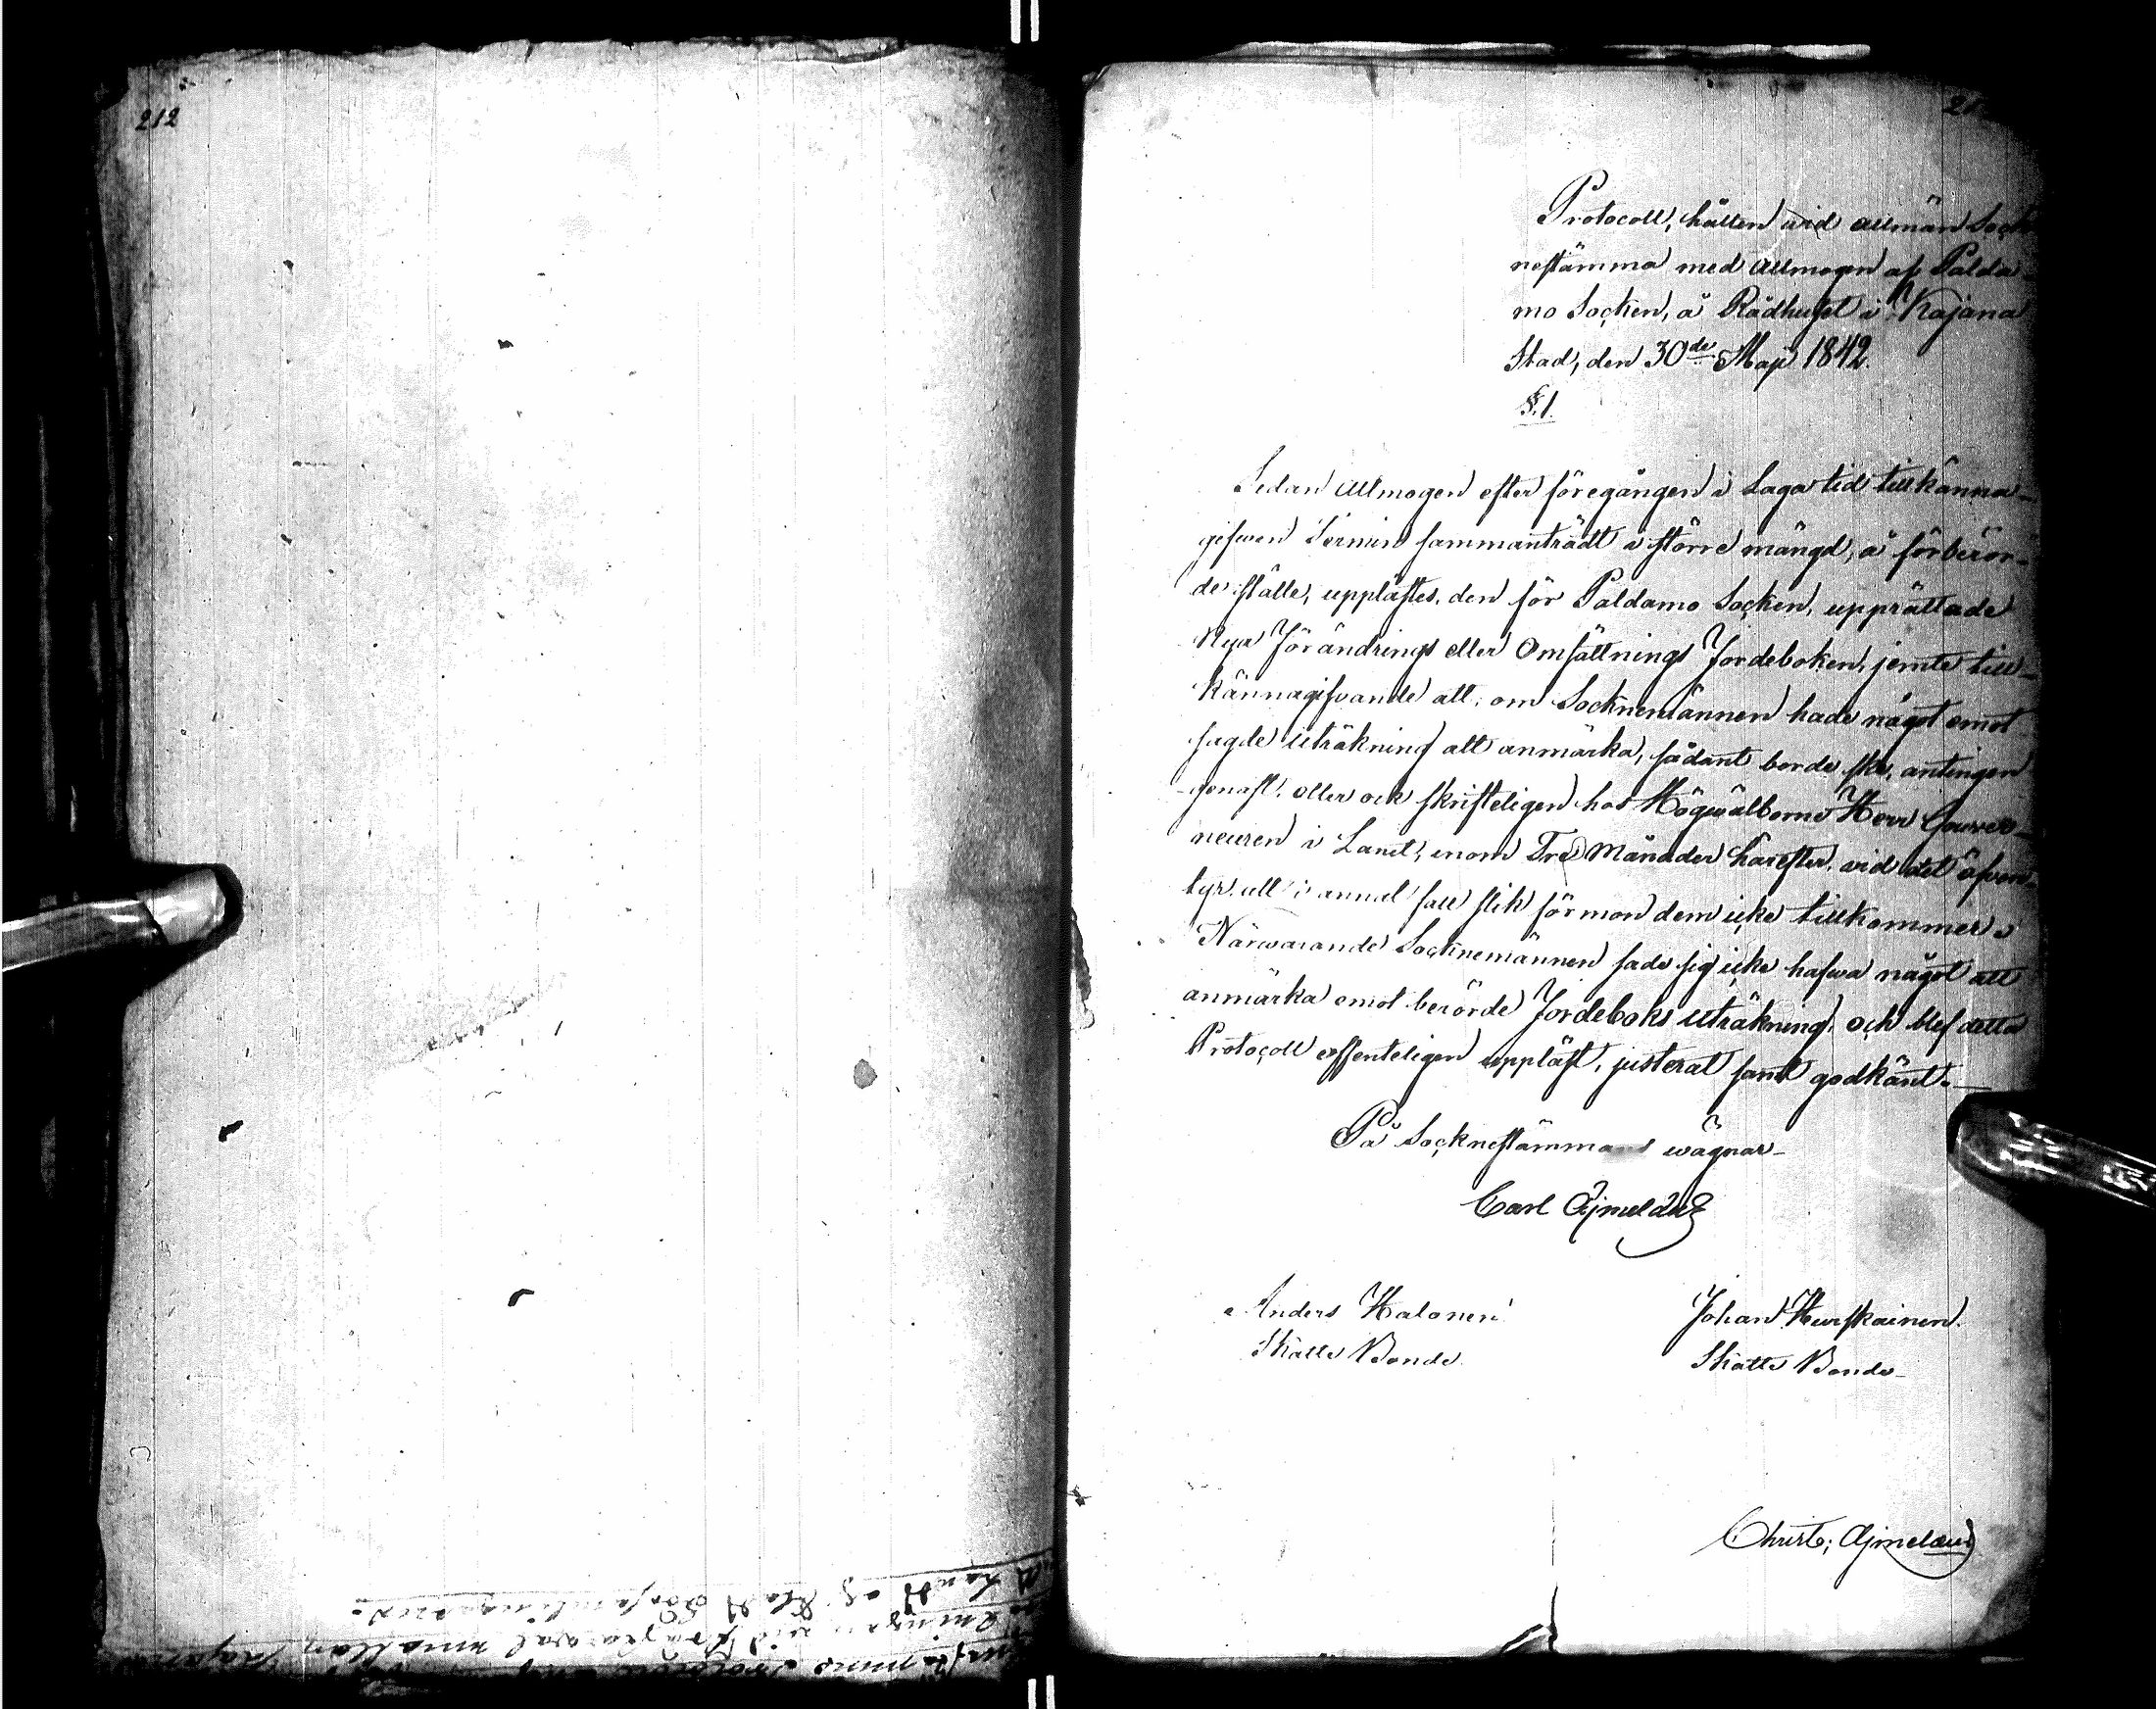 212
Protocoll, hållen wid allmän Sock
nestämma med Allmogen af Palda
mo Socken, å Rådhuset i Kajana
Stad, den 30de Maji 1842.
§. 1.
Sedan Allmogen efter föregången i Laga tid tillkänna-
gifwen Termin sammanträdt i större mängd, å förberör-
de ställe, upplästes, den för Paldamo Socken, upprättade
Nya Förändrings eller Omsättnings Jordeboken, jemte till-
kännagifvande att, om Socknemännen hade något emot
sagde Uträkning att anmärka, sådant borde ske, antingen
genast, eller ock skrifteligen hos Högwälborne Herr Gouver-
neuren i Länet, inom Tre Månader härefter, vid det äfven-
tyr att i annat fall slik förmon dem icke tillkommer
Närwarande Socknemännen sade sig icke hafwa något att
anmärka emot berörde Jordeboks Uträkning, och blef detta
Protocoll offenteligen uppläst, justerat samt godkänt.
På Socknestämmans wägnar
Carl Ajmeldeus
Anders Halonen
Skatte Bonde
Johan Hurskainen.
Skatte Bonde
Christ; Ajmelæus